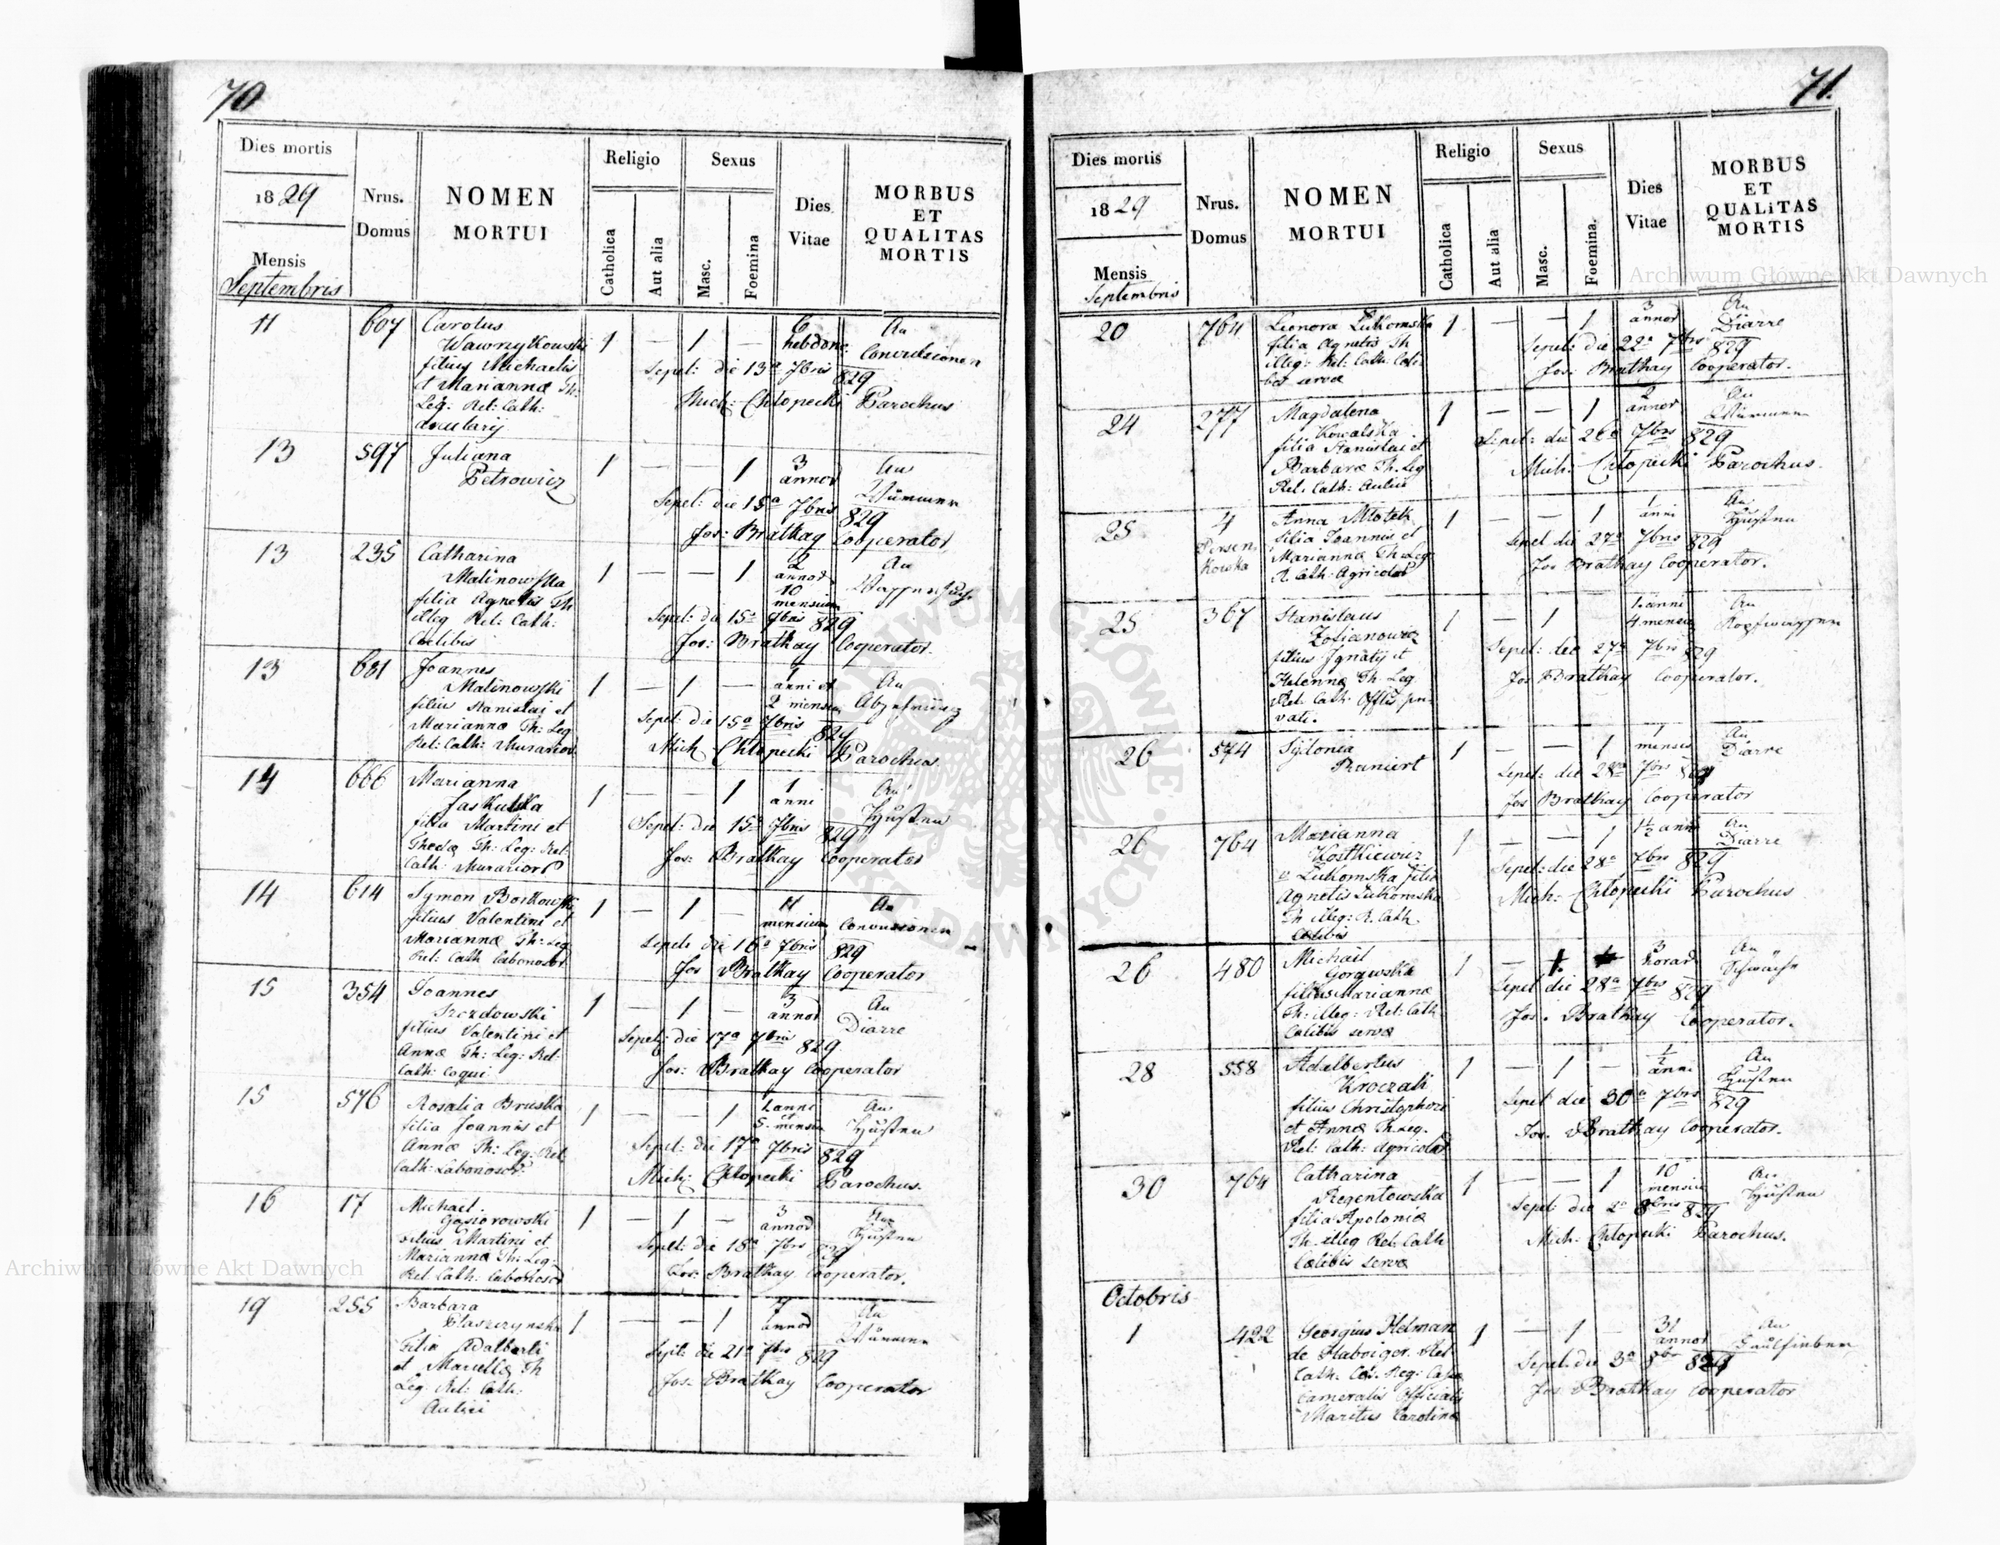 70
Dies mortis
1829
Mensis
Septembris
Nrus.
Domus
NOMEN
MORTUI
Religio
Catholica
Aut alia
Sexus
Masc.
Foemina
Dies
Vitae
MORBUS
ET
QUALITAS
MORTIS
11 607 Carolus 1 — 1 — 6 An
Wawrzykowski hebdom: Convulsionen
filius Michaelis Sepel: die 13a 7bris 829
et Mariannæ Th: Mich: Chłopecki Parochus
Leg: Rel: Cath:
13 597 Juliana 1 — — 1 3 An
Petrowicz annor Würmern
Sepel: die 15a 7bris 829
Jos: Brathay Cooperator
13 235 Catharina 1 — — 1 2 An
Malinowska annor
filia Agnetis Th 10
illeg Rel: Cath: mensium
Cœlibis Sepel: die 15a 7bris 829
Jos: Brathay Cooperator.
13 681 Joannes 1 — 1 — 1 An
Malinowski anni et Abzehrung
filius Stanislai et 2 mensium
Mariannæ Th: Leg Sepel: die 15a 7bris 829
Rel: Cath: Murarior Mich Chłopecki Parochus
14 666 Marianna 1 — — 1 1 An
Jaskulska anni Husten
filia Martini et Sepel: die 15a 7bris 829
Theclæ Th: Leg: Rel: Jos: Brathay Cooperator
Cath: Murarior
14 614 Symon Borkowski 1 — 1 — 11 An
filius Valentini et mensium Convusionen
Mariannæ Th: Leg Sepel: die 16a 7bris 829
Rel: Cath Laborosor Jos Brathay Cooperator
15 354 Joannes 1 — 1 — 3 An
annor Diarre
filius Valentini et Sepel: die 17a 7bris 829
Annæ Th: Leg: Rel: Jos: Brathay Cooperator
Cath: Coqui
15 576 Rosalia Bruska 1 — — 1 1 anni An
filia Joannis et 5. mensium Husten
Annæ Th: Leg: Rel Sepel: die 17a 7bris 829
Cath: Laborosor Mich: Chłopecki Parochus.
16 17 Michael 1 — 1 — 3 An
Gąsiorowski annor Husten
filius Martini et Sepel: die 18a 7bris 829
Mariannæ Th: Leg: Jos: Brathay Cooperator.
Rel Cath: Laborosor
19 255 Barbara 1 — — 1 7 An
annor Würmern
Filia Adalberti Sepel: die 21a 7bris 829
et Marcellæ Th Jos: Brathay Cooperator
Leg Rel: Cath:
Aulici
71.
Dies mortis
1829
Mensis
Septembris
Nrus.
Domus
NOMEN
MORTUI
Religio
Catholica
Aut alia
Sexus
Masc.
Foemina.
Dies
Vitae
MORBUS
ET
QUALiTAS
MORTIS
20 764 Leonora Łukomska 1 — — 1 3 An
filia Agnetis Th annor Diarre
illeg: Rel: Cath: Cœli- Sepel: die 22a 7bris 829
bis servæ Jos. Brathay Cooperator.
24 277 Magdalena 1 — — 1 2 An
Kowalska annor Würmern
filia Stanislai et Sepel: die 26a 7bris 829
Barbaræ Th. Leg Mich: Chłopecki Parochus.
Rel. Cath: Aulici
25 4 Anna Młotek 1 — — 1 1 An
Persen filia Joannis et anni Husten
kowka Mariannæ Th: Leg: Sepel die 27a 7bris 829
R. Cath: Agricolar Jos Brathay Cooperator.
25 367 Stanislaus 1 — 1 1 anni An
Zofianowicz 4 mensium Kopfwassern
filius Ignatij et Sepel: die 27a 7bris 829
Helennæ Th. Leg Jos Brathay Cooperator.
Rel: Cath: Offlis pri-
vati.
26 574 Sydonia 1 — — 1 1 An
Runiert mensis Diarre
Sepel: die 28a 7bris 829
Jos Brathay Cooperator
26 764 Marianna 1 — — 1 1½ anni An
Kostkiewicz Diarre
v Łukomska filia Sepel: die 28a 7bris 829
Agnetis Łukomska Mich: Chłopecki Parochus
Th illeg: R. Cath.
Cælibis
26 480 Michael 1 — 1. 3 An
Gorąwska horar Schwäche
filius Mariannæ Sepel die 28a 7bris 829
Th: illeg: Rel: Cath. Jos. Brathay Cooperator.
Cælibis servæ
28 558 Adalbertus 1 — 1 — ½ An
Kroczak anni Husten
filius Christophori Sepel die 30a 7bris 829
et Annæ Th. Leg. Jos. Brathay Cooperator.
Rel: Cath: Agricolar
30 764 Catharina 1 — — 1 10 An
Regentowska mensium Husten
filia Apoloniæ Sepel die 2a 8bris 829
Th. illeg Rel. Cath Mich: Chłopecki Parochus.
Cælibis servæ
Octobris
1 422 Georgius Helman 1 — 1 — 31 An
de Haboiger. Rel annor Faulfieber
Cath. Cæs. Reg: Cassæ Sepel: die 3a 8br 829
Cameralis Officialis Jos Brathay Cooperator
Maritus Carolinæ
Archiwum Główne Akt Dawnych
Archiwum Główne Akt Dawnych
ARCHIWUM GŁÓWNE AKT DAWNYCH